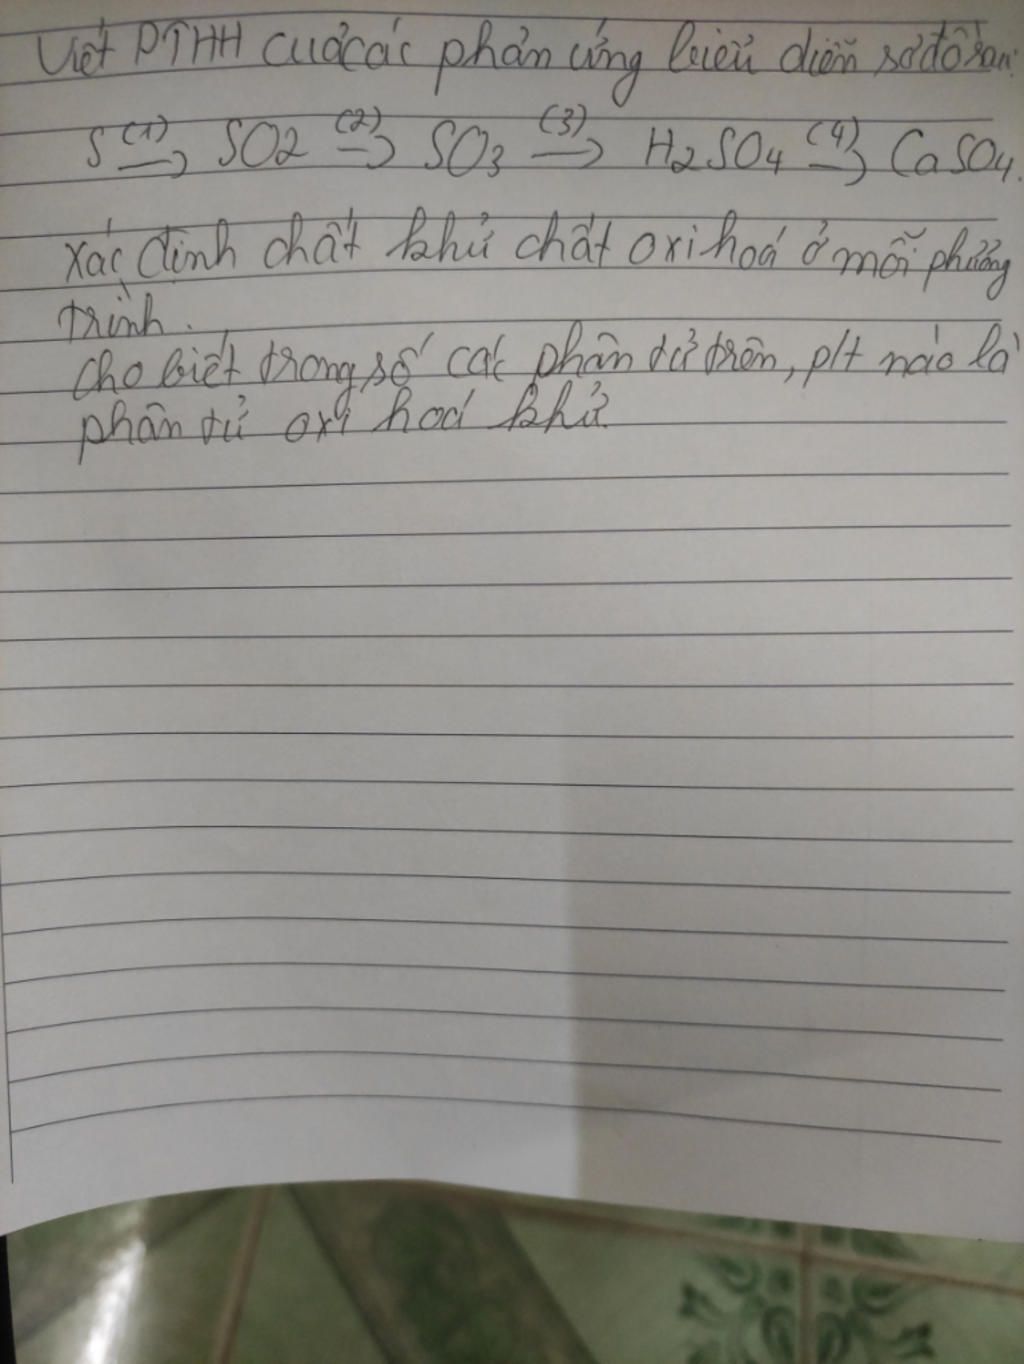 Viết PTHH của các phản ứng biểu diễn sơ đồ sau:
S (1)→ SO2 (2)→ SO3 (3)→ H2SO4 (4)→ CaSO4.
xác định chất khử chất oxi hoá ở mỗi phương
trình.
cho biết trong số các phân tử trên, p/t nào là
phân tử oxi hoá khử